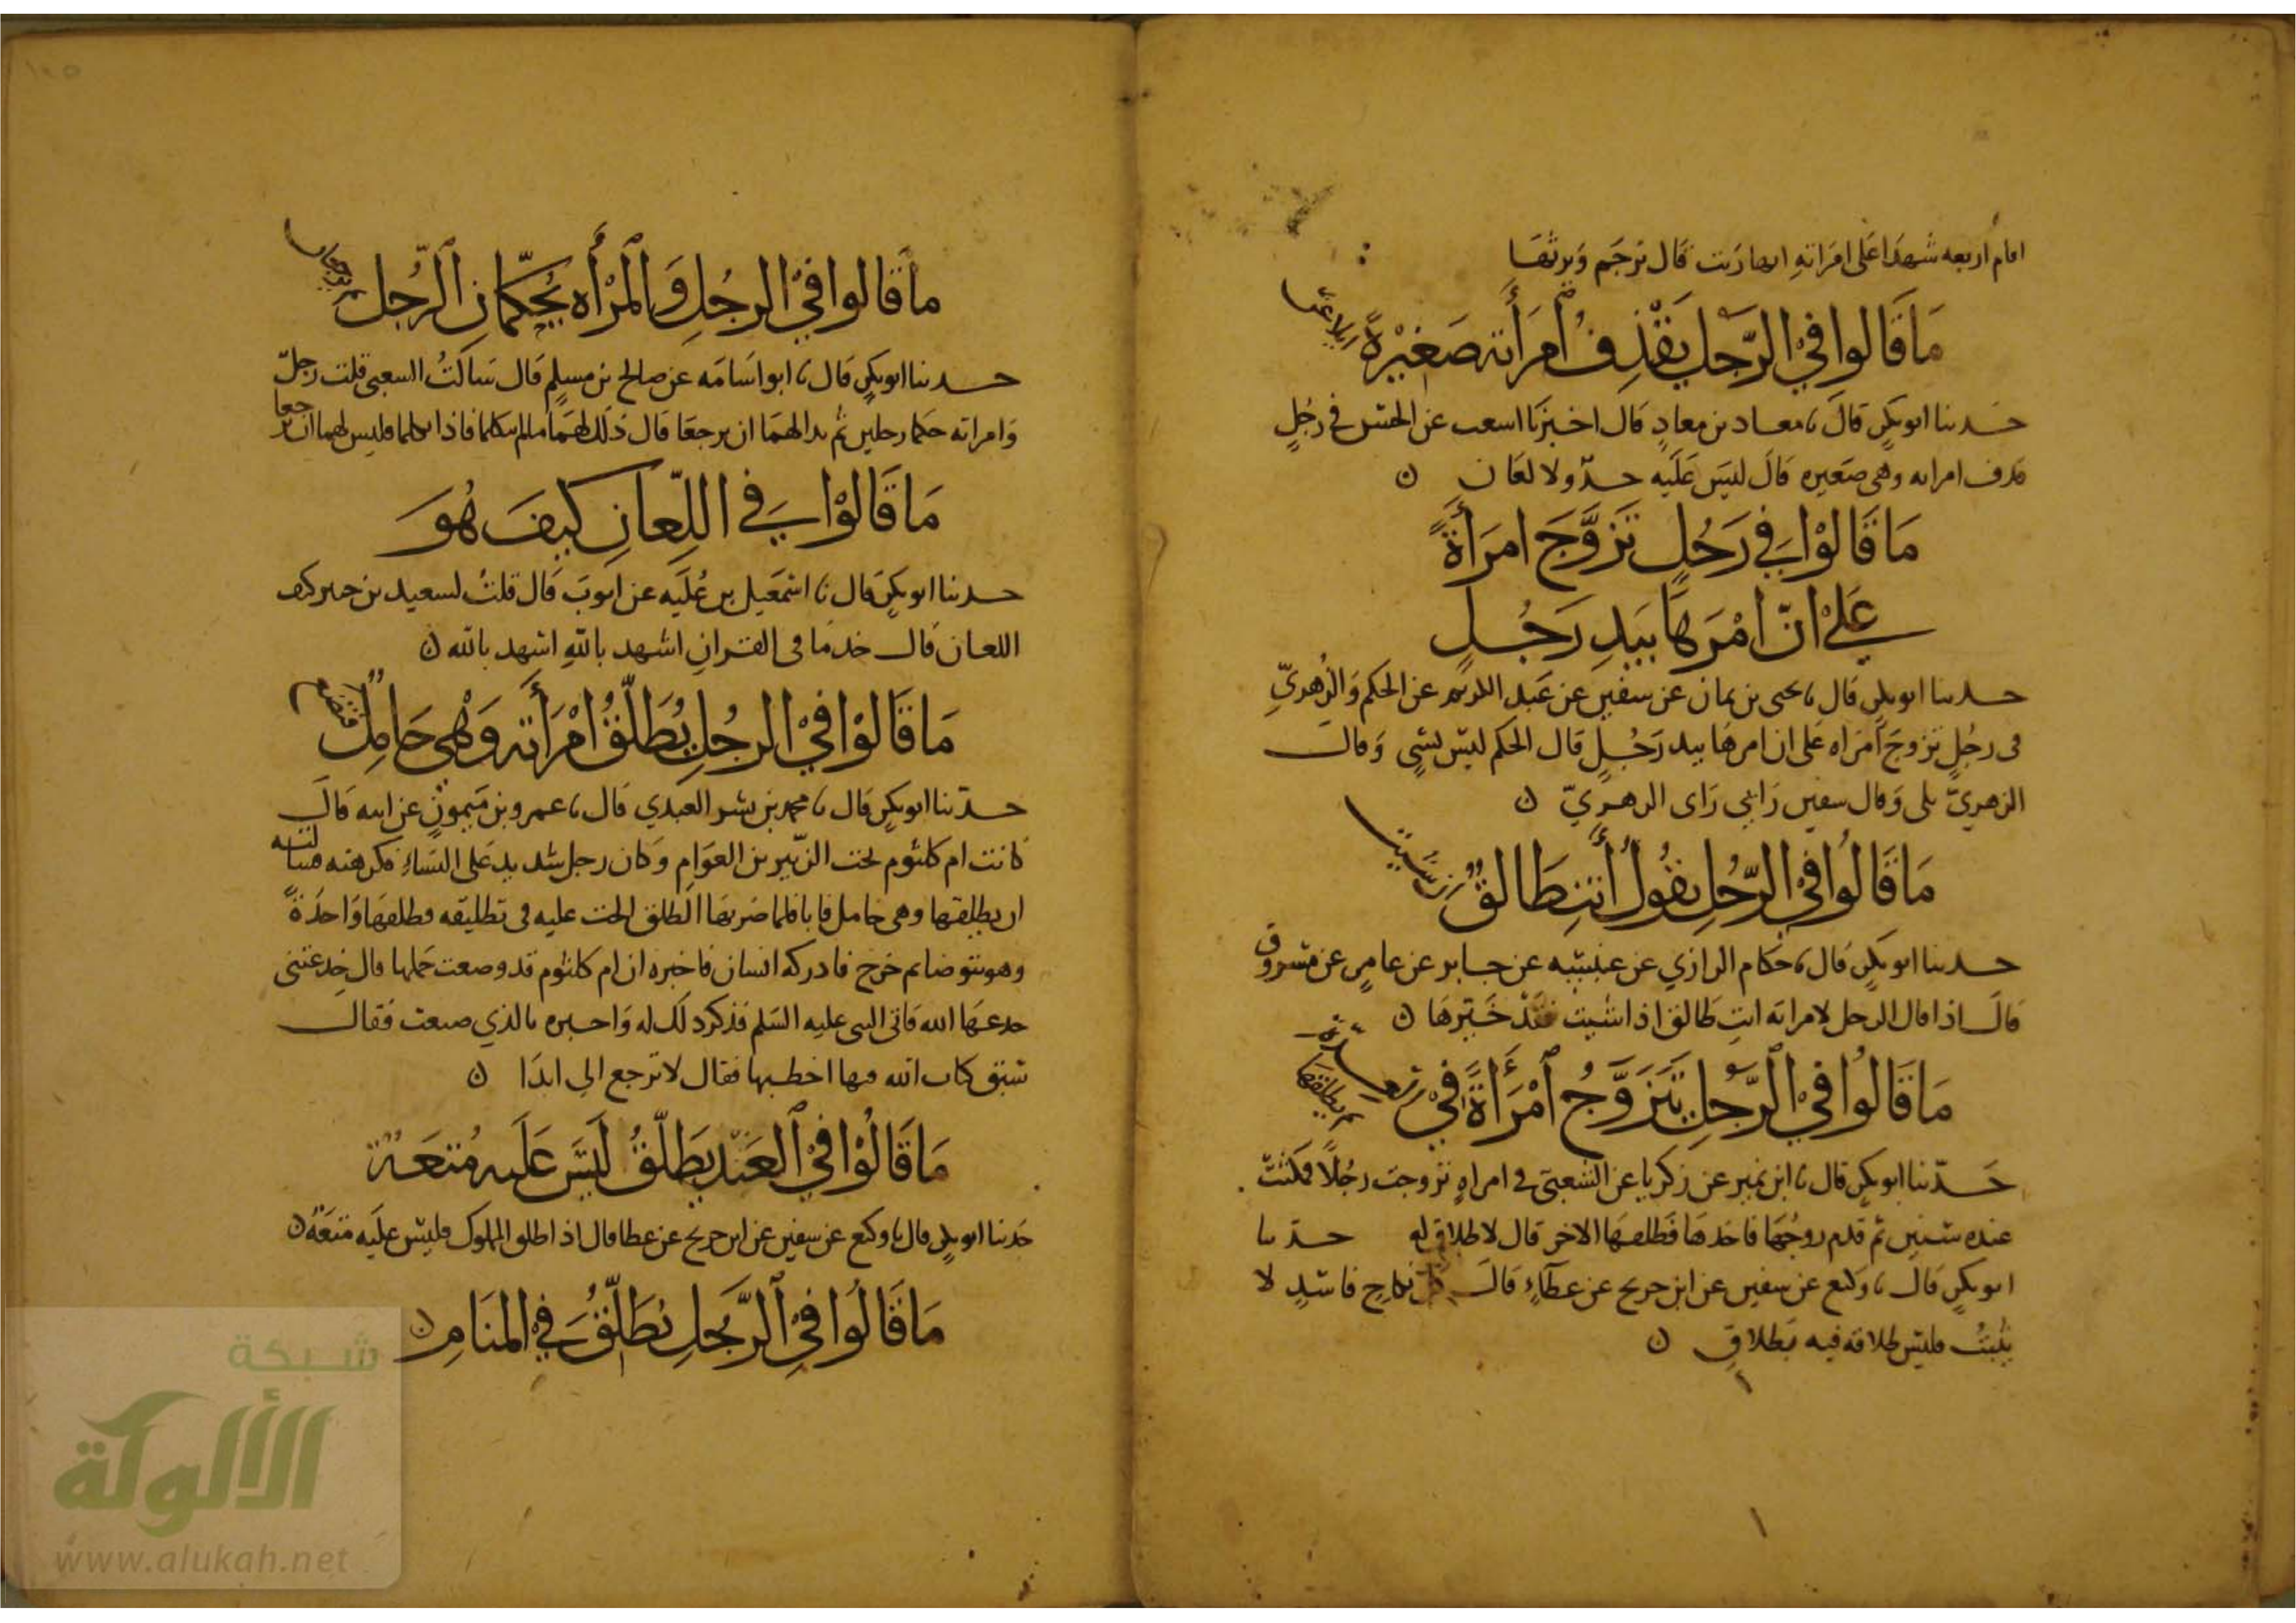 اقام اربعه شهدا على امراته انها زنت قال ترجم ويرثها
مَا قَالوا في الرَّجُلِ يَقْذِفُ اَمْرَأَته صَغيْرةً ايلاعن
حدثنا ابو بكرٍ قال نا معاذ بن معاذٍ قال اخبرنا اشعث عن الحسن في رجُلٍ
قذف امراته وهي صغيره قال ليسَ عَلَيه حدّ ولا لعان ن
مَا قَالوْا في رَجُلٍ تَزوَّجَ امرَأةً
عَلىْ انّ اَمْرَهَا بيَدِ رَجُلٍ
حدثنا ابو بكرٍ قال نا يحيى بن يمان عن سفين عن عَبد الكريم عن الحكم وَالزُهريِّ
في رجُلٍ تزوجَ امراه عَلى ان امرها بيد رَجُلٍ قال الحكم ليسَ بشيٍ وَقال
الزهريّ بلى وَقال سفين رَايي رَاى الزهريّ ن
مَا قَالوُا في الرّجُلِ يقُولُ أنتِ طَالقٌ ان شيت
حدثنا ابو بكرٍ قال نا حكام الرازي عن عنبسه عن جابر عن عامرٍ عن مسروق
قالَ اذا قال الرجل لامراته انتِ طَالق اذا شيت فقد خَيّرهَا ن
مَا قَالوُا فيْ الرَّجُلِ يَتَزوَّجُ اَمْرَأةً فيْ عدة ثم يطلقها
حَدّثنا ابو بكرٍ قال نا ابن نمير عن زكريا عن الشعبيّ في امراهٍ تزوجت رجُلاً فمكثتْ
عنده سنين ثم قدم زوجُهَا فاخذهَا فَطلقهَا الاخر قال لا طلاق له حدثنا
ابو بكرٍ قال نا وكيع عن سفين عن ابن جريج عن عطآءٍ قالَ كل نكاحٍ فاسدٍ لا
يثبتُ فليس طلاقه فيه بطلاقٍ ن
مَا قَالوا فيْ الرجُلِ وَالمَرْأَه يُحكّمانِ الرَّجُل ثم يرجعان
حدثنا ابو بكرٍ قال نا ابو اسَامَه عن صالح بن مسلمٍ قال سَالتُ الشعبي قلت رجلٌ
وَامراته حكما رجلين ثم بدا لهمَا ان يرجعَا قال ذلك لهمَا ما لم يتكلما فاذا تكلما فليس لهما ان يرجعا
مَا قَالوْا في اللِّعانِ كيفَ هُوَ
حدثنا ابو بكرٍ قال نا اسمَعيل بن عُلَيه عن ايوبَ قَال قلتُ لسعيد بن جبير كيف
اللعان قال خذ مَا في القرانِ اشهد باللهِ اشهد بالله ن
مَا قَالوْا فيْ الرجُلِ يُطَلّقُ اْمْرَأَته وَهْي حَامِلٌ فتضع
حدّثنا ابو بكرٍ قال نا محمد بن بشر العَبدي قال نا عمرو بن مَيمونٍ عن ابيه قَالَ
كانت ام كلثوم تحت الزّبير بن العوَامِ وَكان رجل شديد عَلى النسَاءِ فكرهته فسالته
ان يطلقها وهي حامل فابا فلما ضَربهَا الطلق الحت عليه في تطليقه فطلقهَا وَاحدَةً
وهو يتوضا ثم خرج فادركه انسان فاخبره ان ام كلثوم قد وضعت حملها قال خدعتني
خدعَهَا الله فَاتى النبي عليه السَلم فذكر ذلك له وَاخبره بالذي صنعت فقال
سَبق كتاب الله فيها اخطبها فقال لا ترجع الي ابدَا ن
مَا قَالُوْا فيْ اَلعَبْدِ يطَلّقُ لَيسَ عَلَيه مُتعَة
حدثنا ابو بكرٍ قال نا وكيع عن سفين عن ابن جريج عن عطا قال اذا طلق المملوك فليسَ عليَه متعَهٌ ن
مَا قَالُوا فيْ اَلرَّجلِ يُطَلّقُ في المنَامِ ن
شبكة
الألوكة
www.alukah.net